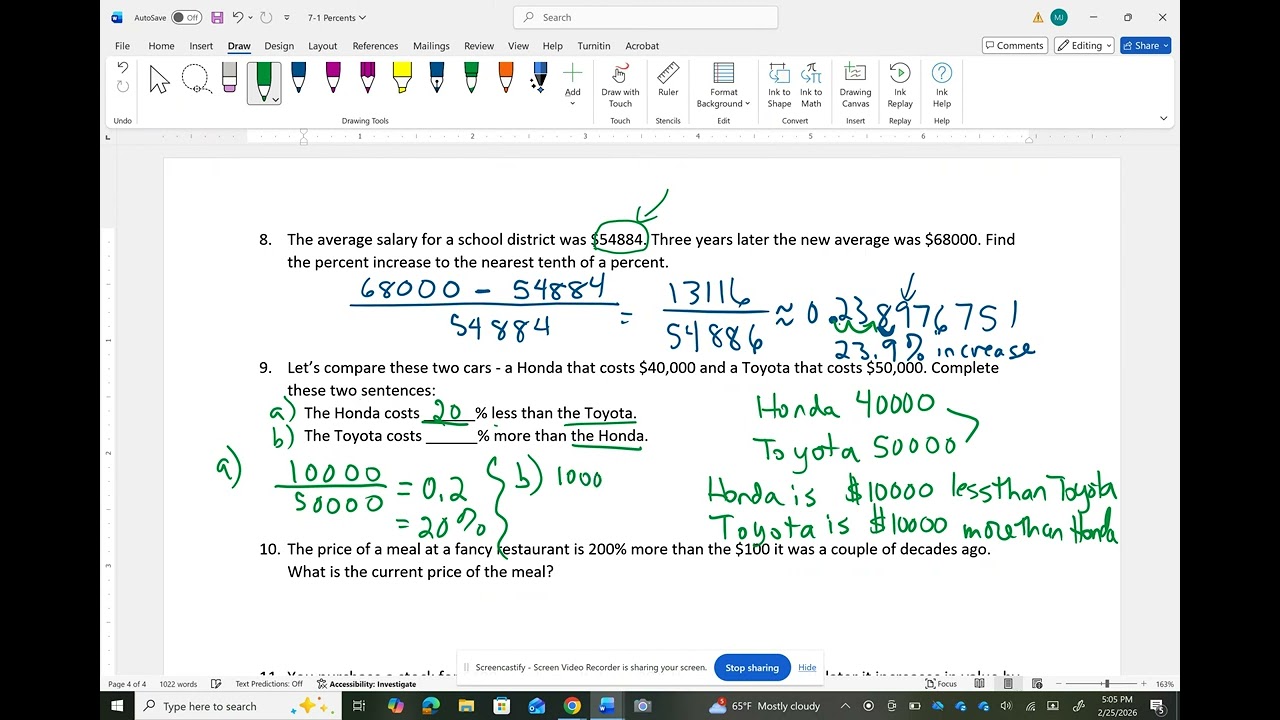 AutoSave Off 7-1 Percents Search MJ
File Home Insert Draw Design Layout References Mailings Review View Help Turnitin Acrobat Comments Editing Share
Undo Add Draw with Touch Ruler Format Background Ink to Shape Ink to Math Drawing Canvas Ink Replay Ink Help
Undo Drawing Tools Touch Stencils Edit Convert Insert Replay Help
1 2 3 4 5 6
8. The average salary for a school district was $54884. Three years later the new average was $68000. Find
the percent increase to the nearest tenth of a percent.
68000 - 54884 / 54884 = 13116 / 54886 ≈ 0.238976751
23.9% increase
9. Let's compare these two cars - a Honda that costs $40,000 and a Toyota that costs $50,000. Complete
these two sentences:
a) The Honda costs 20 % less than the Toyota.
b) The Toyota costs ______% more than the Honda.
Honda 40000
Toyota 50000
a) 10000 / 50000 = 0.2
= 20%
b) 1000
Honda is $10000 less than Toyota
Toyota is $10000 more than Honda
10. The price of a meal at a fancy restaurant is 200% more than the $100 it was a couple of decades ago.
What is the current price of the meal?
Screencastify - Screen Video Recorder is sharing your screen. Stop sharing Hide
Page 4 of 4 1022 words Text Predictions: Off Accessibility: Investigate Focus 163%
Type here to search 65°F Mostly cloudy 5:05 PM
2/25/2026